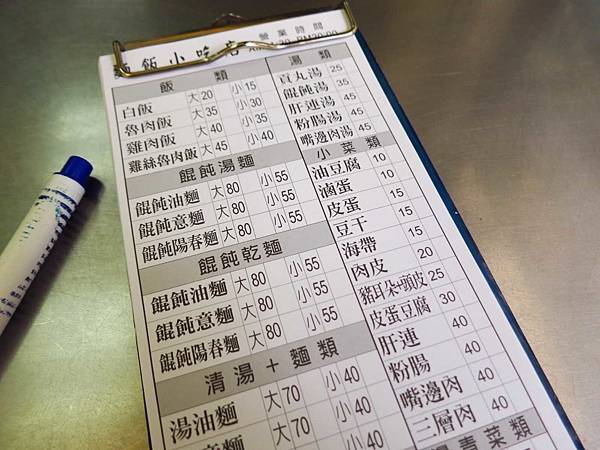 麵飯小吃店
營業時間
飯類
白飯 大20 小15
魯肉飯 大35 小30
雞肉飯 大40 小35
雞絲魯肉飯 大45 小40
餛飩湯麵
餛飩油麵 大80 小55
餛飩意麵 大80 小55
餛飩陽春麵 大80 小55
餛飩乾麵
餛飩油麵 大80 小55
餛飩意麵 大80 小55
餛飩陽春麵 大80 小55
清湯+麵類
湯油麵 大70 小40
意麵 大70 小40
小40
湯類
貢丸湯 25
餛飩湯 35
肝連湯 45
粉腸湯 45
嘴邊肉湯 45
小菜類
油豆腐 10
滷蛋 10
皮蛋 15
豆干 15
海帶 15
肉皮 20
豬耳朵+頭皮 25
皮蛋豆腐 30
肝連 40
粉腸 40
嘴邊肉 40
三層肉 40
青菜類